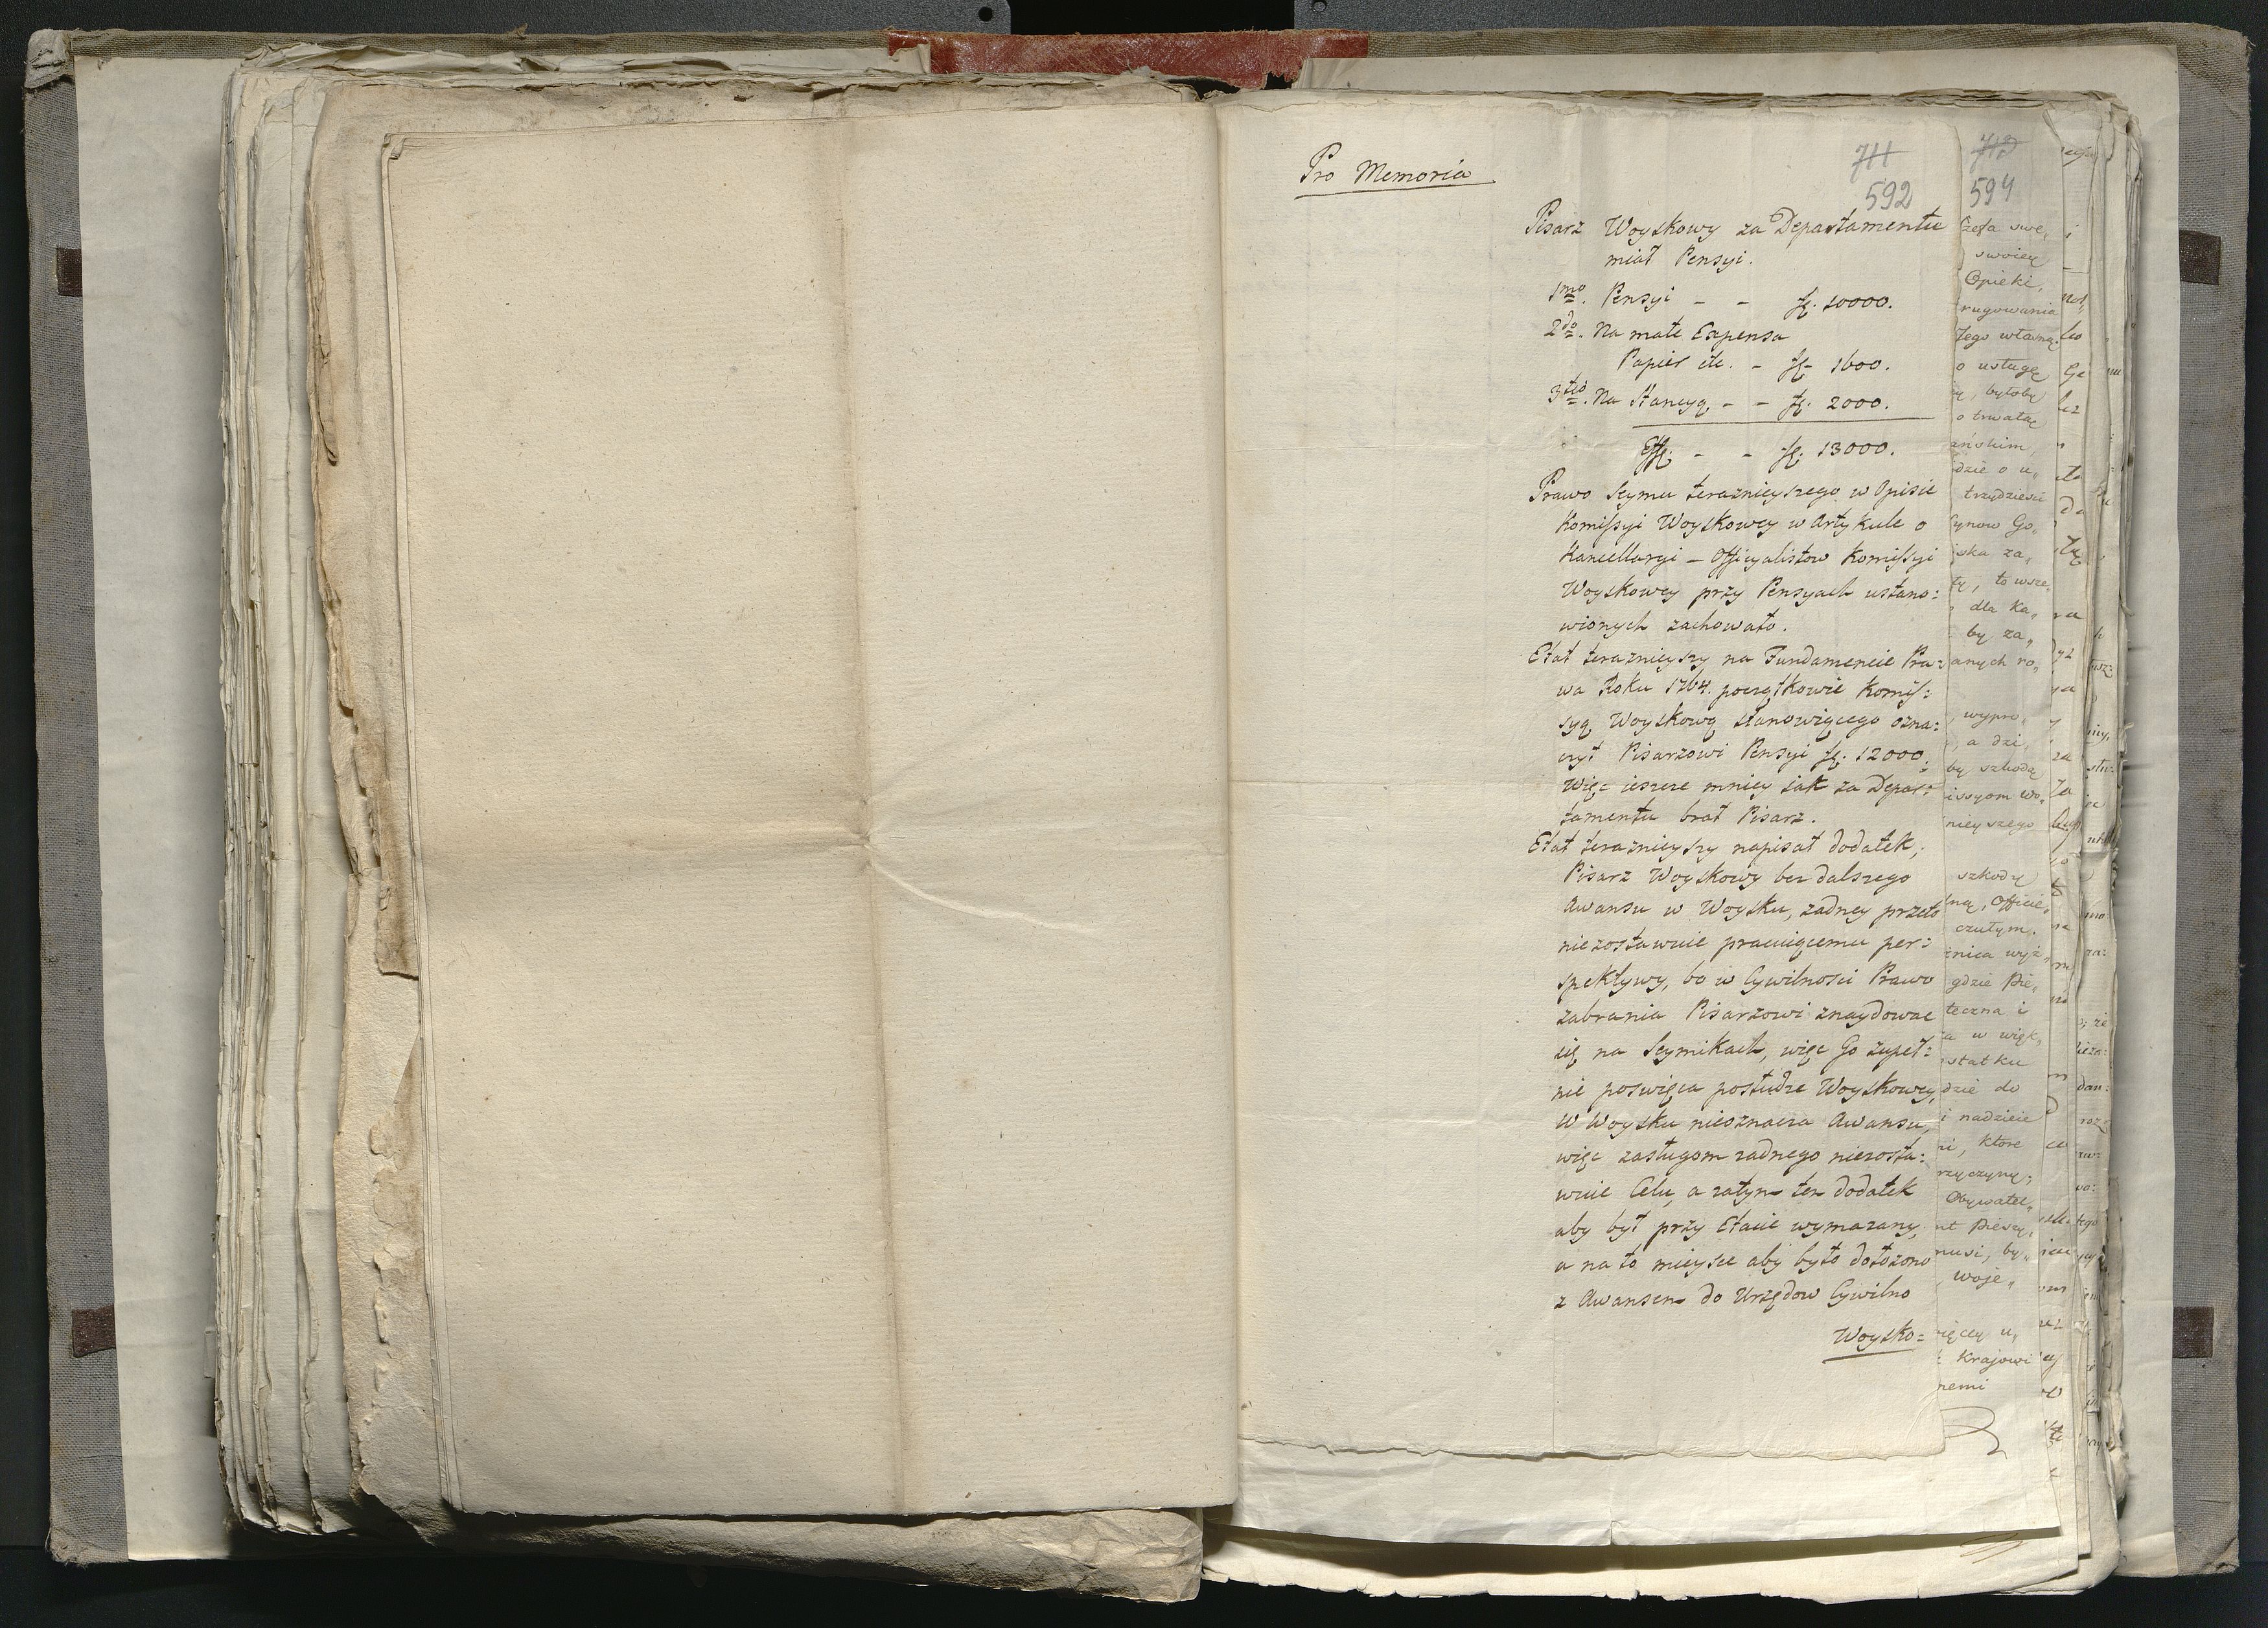 Pro Memoria
711
592
Pisarz Woyskowy za Departamentu
miał Pensyi.
1mo. Pensyi - - fl. 10000.
2do. Na małe Expensa
Papier etc. - fl. 1600.
3tio. Na Stancyą - - fl. 2000.
Eff. - - fl. 13000.
Prawo Seymu teraznieyszego w Opisie
Komissyi Woyskowey w Artykule o
Kancellaryi – Officyalistow Komissyi
Woyskowey przy Pensyach ustano:
wionych zachowało.
Etat teraznieyszy na Fundamencie Pra:
wa Roku 1764. początkowie Komis:
syą Woyskową stanowiącego ozna:
czył Pisarzowi Pensyi fl. 12000.
Więc ieszcze mniey jak za Depar:
tamentu brał Pisarz.
Etat teraznieyszy napisał dodatek,
Pisarz Woyskowy bez dalszego
Awansu w Woysku, zadney przeto
niezostawuie pracuiącemu per:
spektywy, bo w Cywilnosci Prawo
zabrania Pisarzowi znaydowac
się na Seymikach, więc Go zupeł:
nie poswięca posłudze Woyskowey,
W Woysku nieoznacza Awansu,
więc zasługom zadnego niezosta:
wuie Celu, a zatym ten dodatek
aby był przy Etacie wymazany,
a na to mieysce aby było dołożono
z Awansem do Urzędow Cywilno
Woysko=
594
swoiey
Opieki,
rugowania
Jego własną
o usługę
byłoby
o trwałą
dzie o u„
trzydziesci
synow Go„
ska za„
to wsze„
dla Ka„
by za„
anych ro„
wypro„
a dzi
by szkodą
issyom wo„
nieyszego
szkodę
Officie„
czułym.
znica wyż„
gdzie Pie„
teczna i
a w więk„
statku
dzie do
i nadzieie
ktore
rzyczyny,
Obywatel„
Pieszy,
musi, by„
woje„
ięcey u„
Krajowi
remi